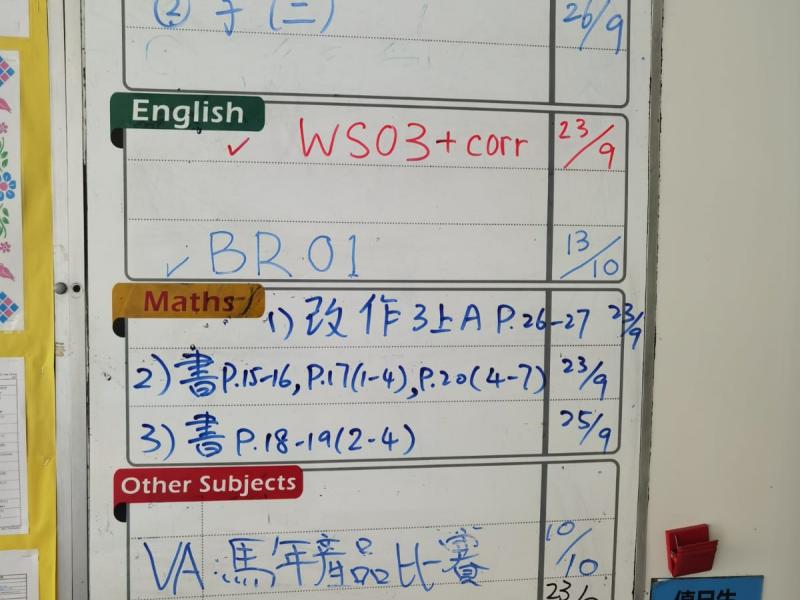 ② 手(二) 26/9
English
✓ WS03+corr 23/9
✓ BR 01 13/10
Maths
1) 改作3上A P.26-27 23/9
2) 書P.15-16, P.17(1-4), P.20(4-7) 23/9
3) 書P.18-19(2-4) 25/9
Other Subjects
VA:馬年產品比賽 10/10
23/
值日生